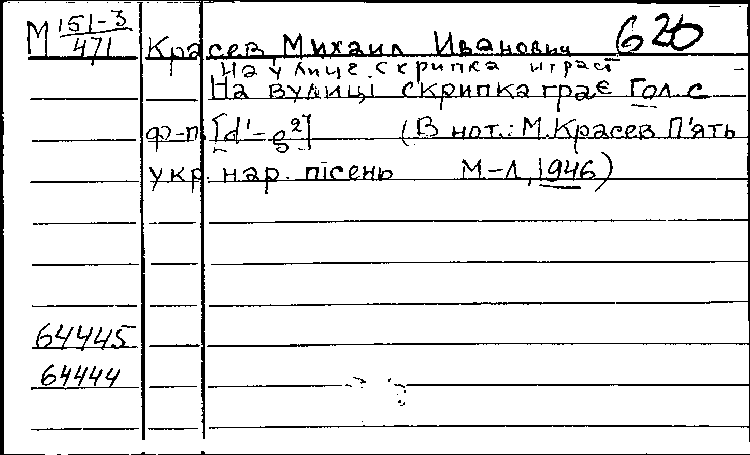 М 151-3/471 Красев, Михаил Иванович 620
На улице скрипка играет
На вулиці скрипка грає Гол. с
ф-п. [d'-g²] (В нот.: М.Красев П'ять
укр. нар. пісень М.-Л, 1946)
64445
64444